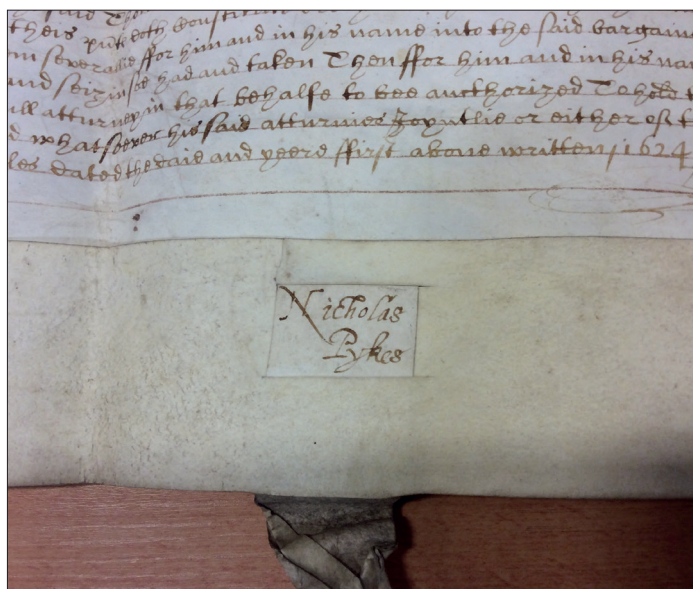 said
theis putt doth constitute
on severalie ffor him and in his name into the said bargaine
and seizin soe had and taken Then ffor him and in his nam
ull atturney in that behalfe to bee aucthorized To hold
d whatsoever his said atturnies Joyntlie or either of t
les dated the daie and yeere ffirst above written / 1624
Nicholas
Pykes